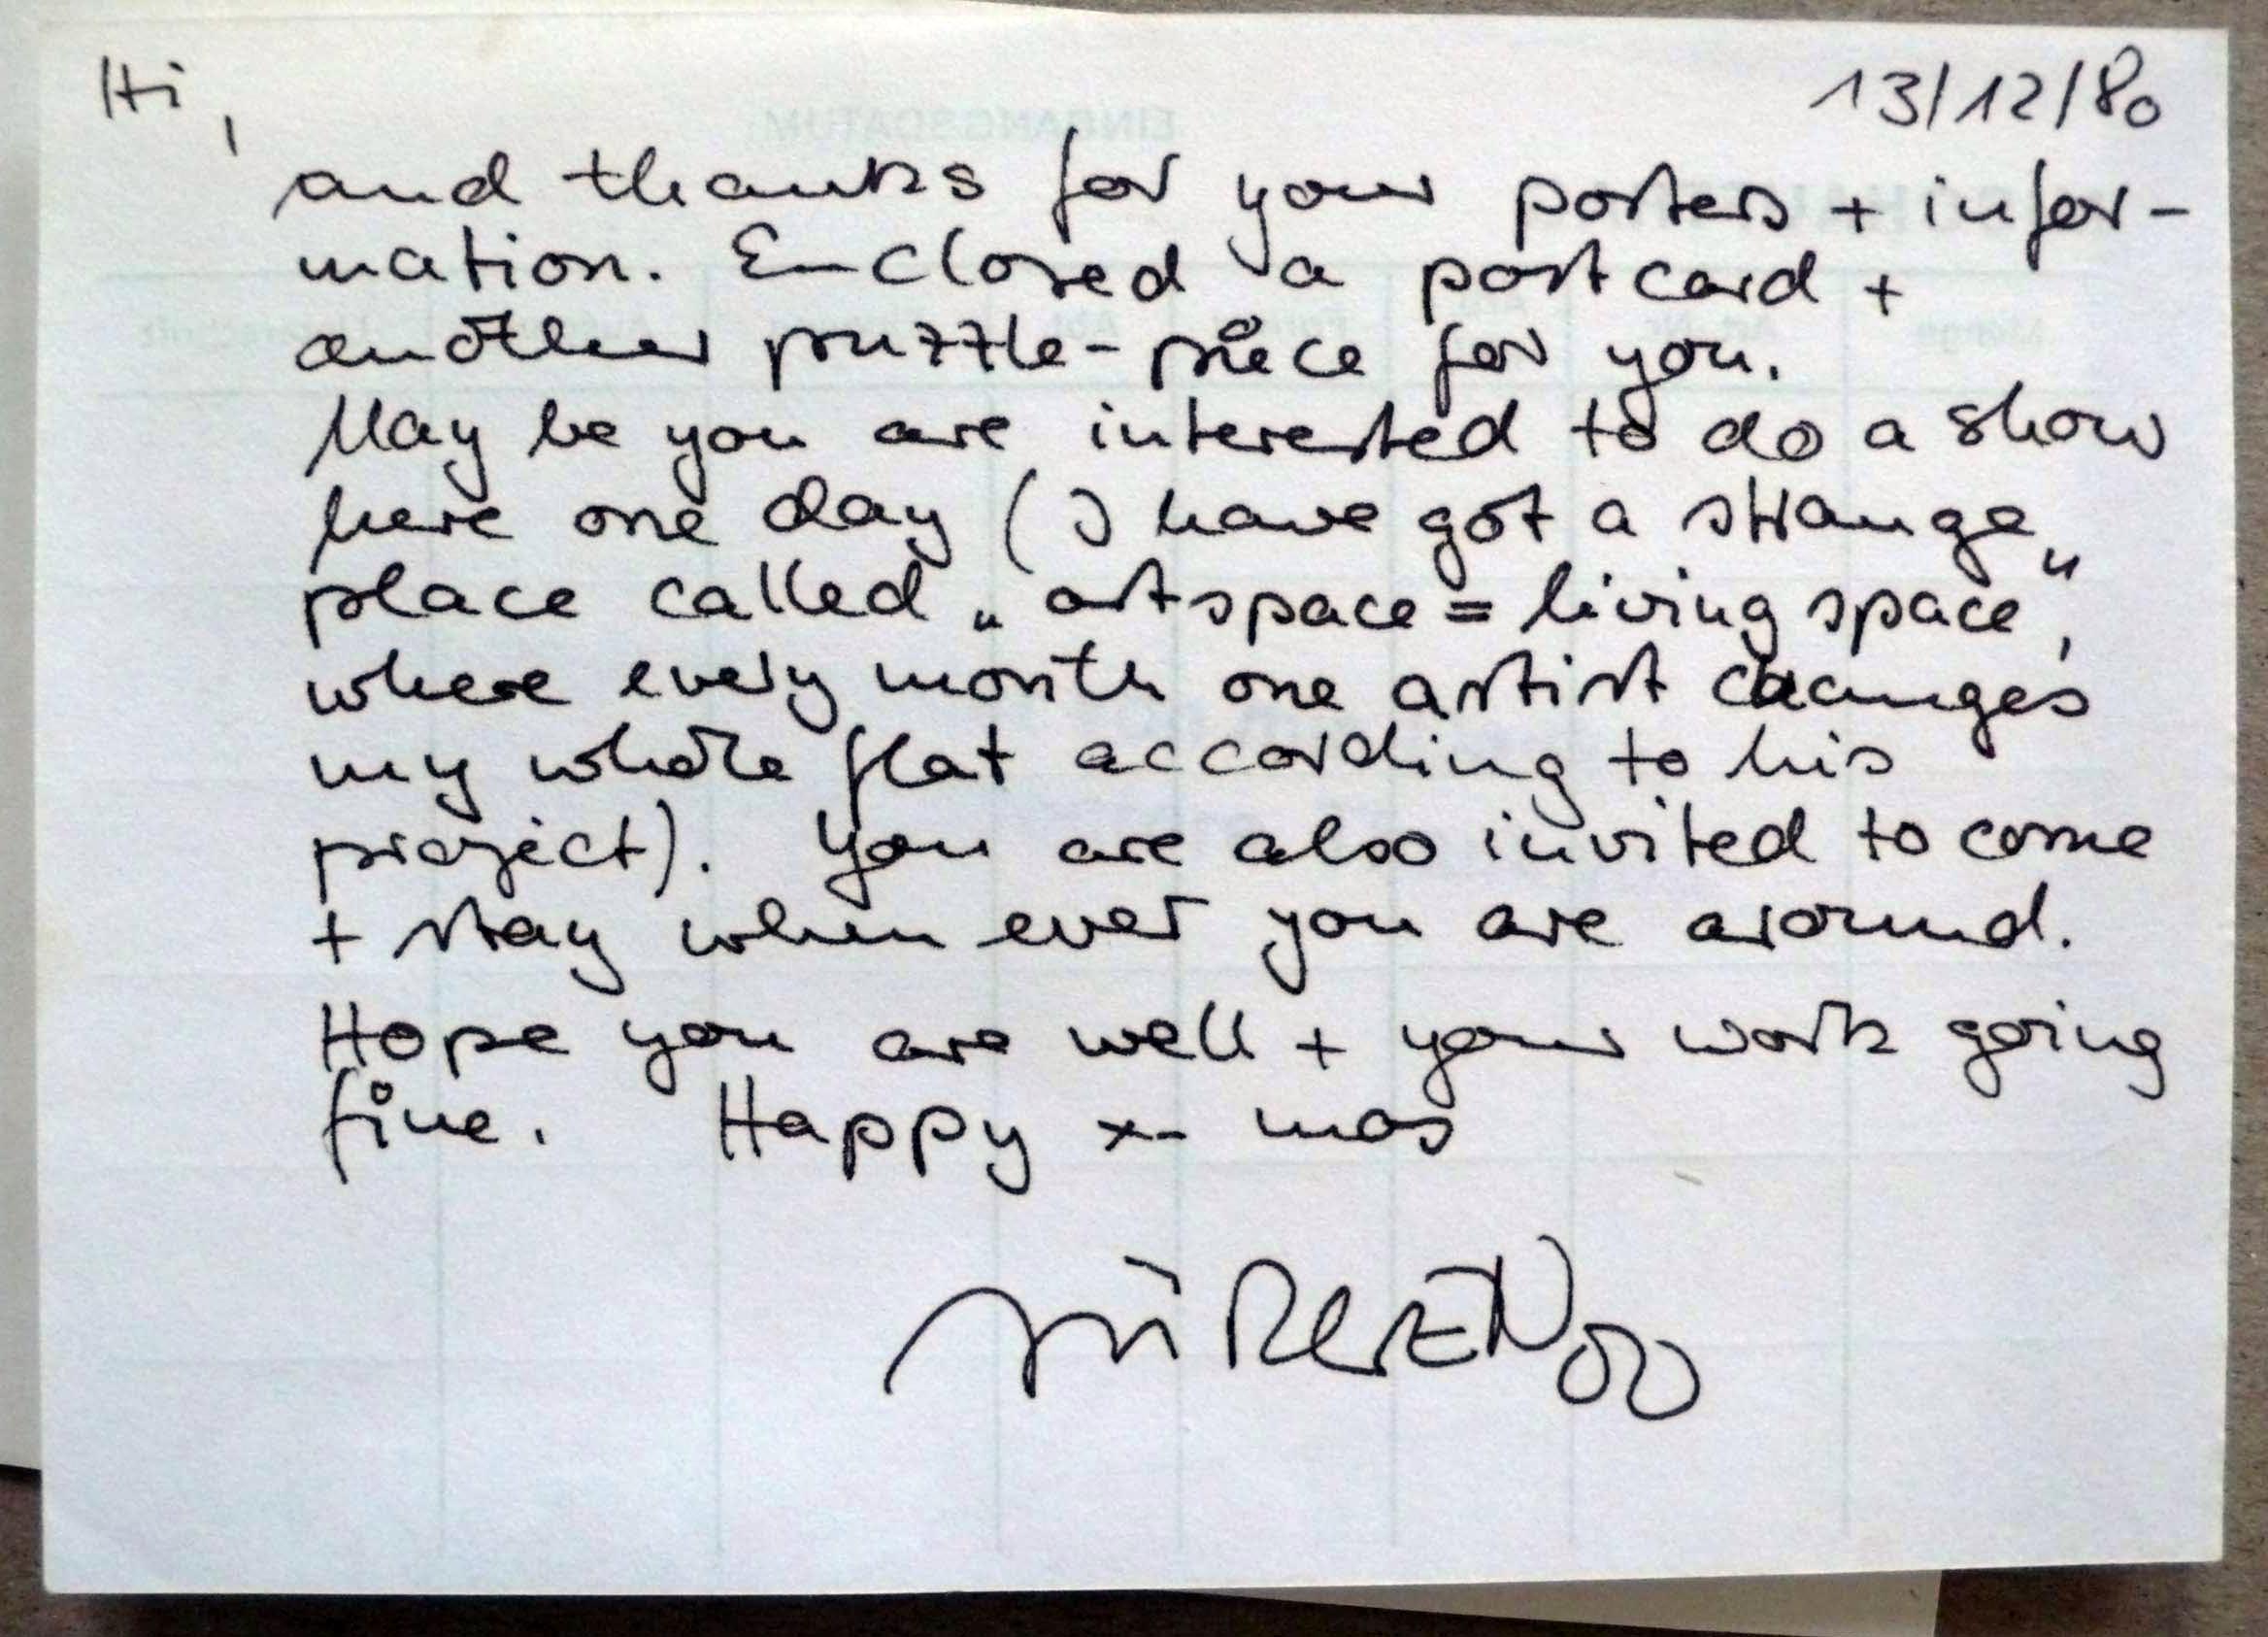 Hi,
13/12/80
and thanks for your posters + infor-
mation. Enclosed a postcard +
another puzzle-piece for you.
May be you are interested to do a show
here one day (I have got a strange
place called „artspace = living space“,
where every month one artist changes
my whole flat according to his
project). You are also invited to come
+ stay when ever you are around.
Hope you are well + your work going
fine. Happy x-mas
EINGANGSDATUM